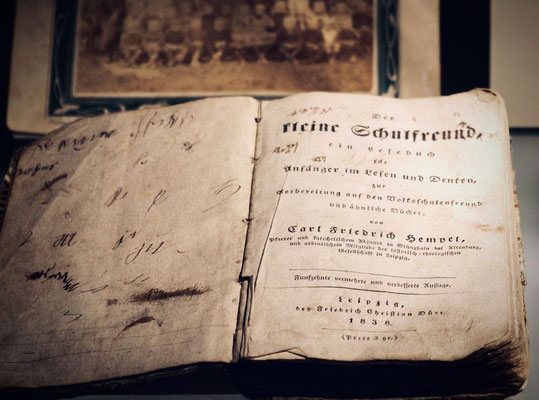 Der
kleine Schulfreund,
ein Lesebuch
für
Anfänger im Lesen und Denken,
zur
Vorbereitung auf den Volksschulenfreund
und ähnliche Bücher,
von
Carl Friedrich Hempel,
Pfarrer und katechetischem Adjunct in Stünzhain bei Altenburg,
und ordentlichem Mitgliede der historisch-theologischen
Gesellschaft in Leipzig.
Funfzehnte vermehrte und verbesserte Auflage.
Leipzig,
bey Friedrich Christian Dürr.
1838.
(Preis 3 gr.)